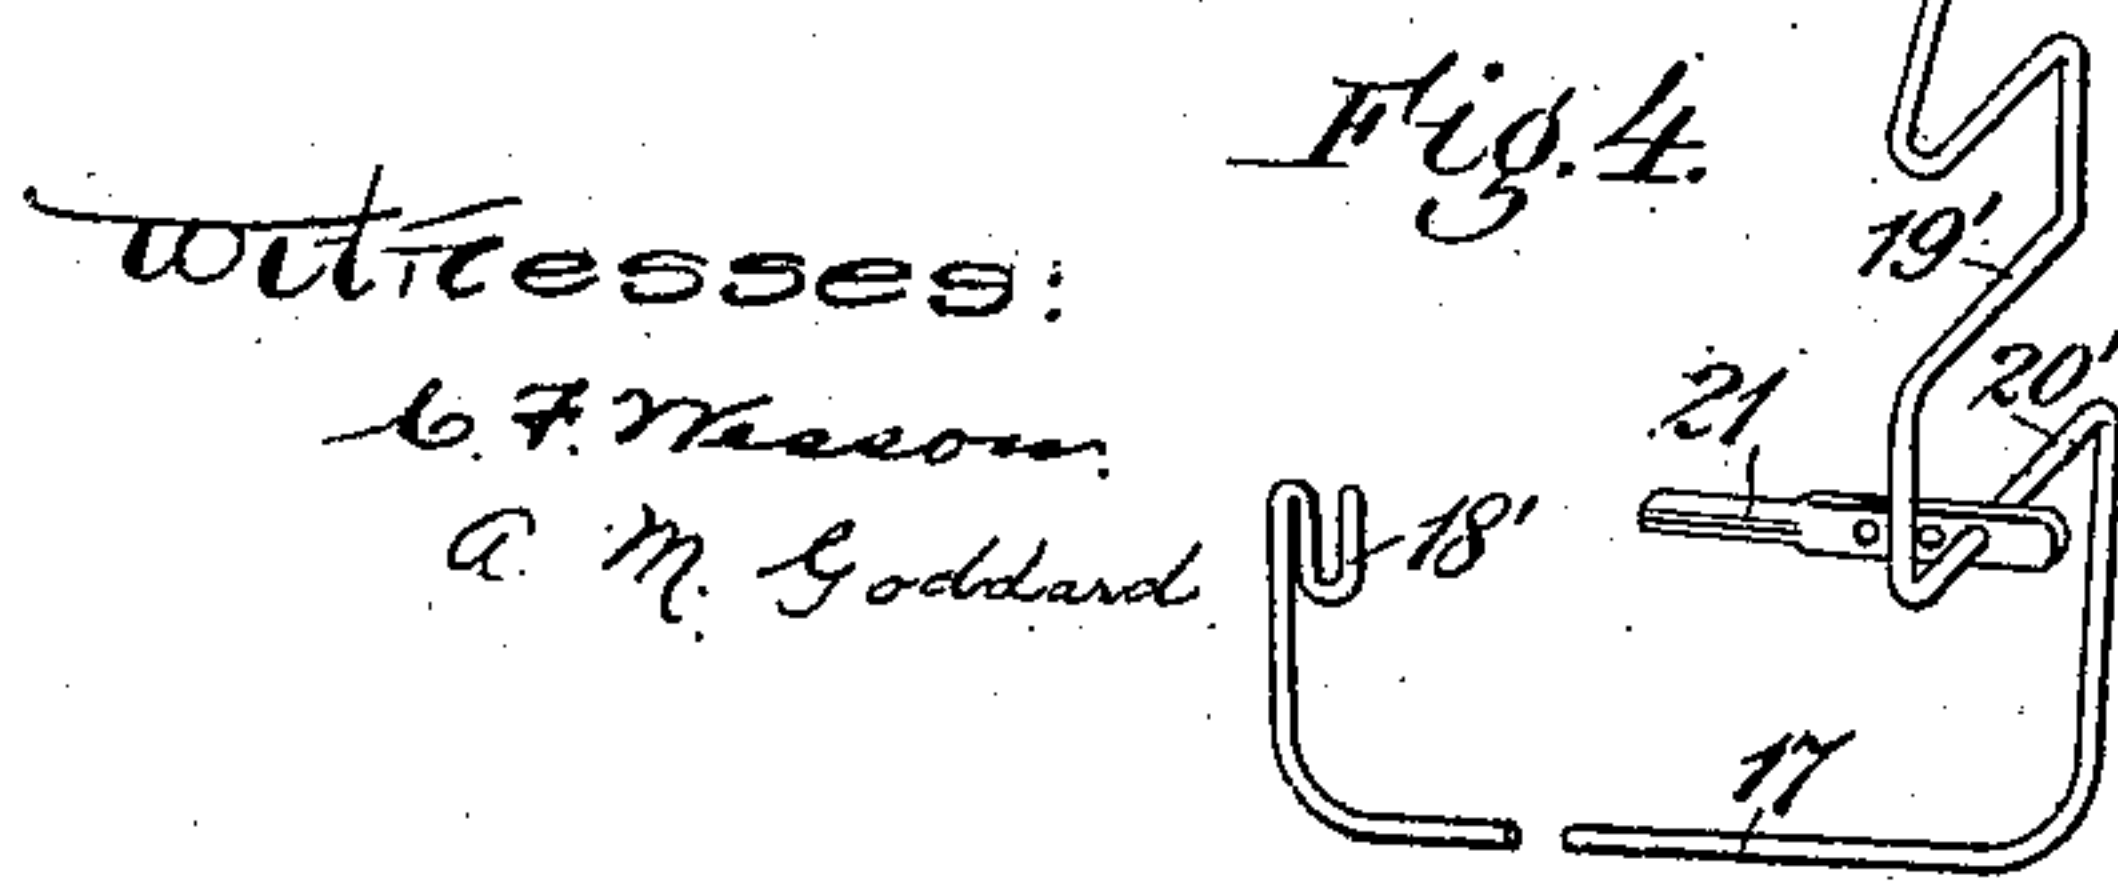 Fig. 4.
Witnesses:
C. F. Wesson.
A. M. Goddard
19'
20'
21
18'
17